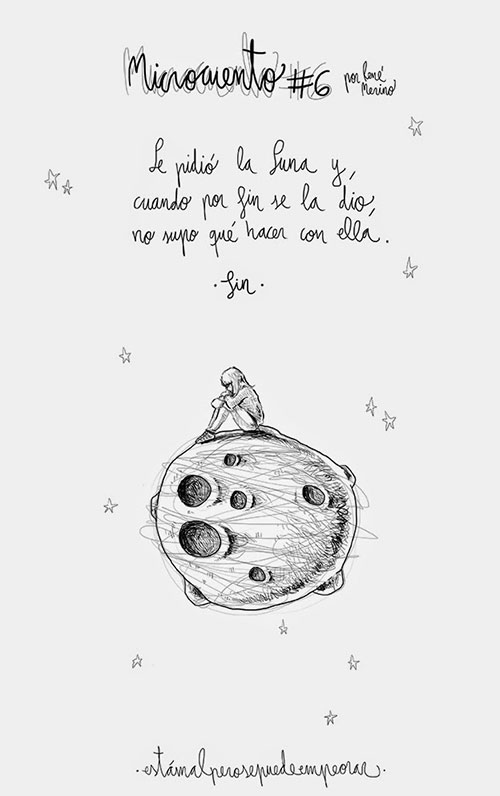 Microcuento #6 por René
Merino
Le pidió la luna y,
cuando por fin se la dio,
no supo qué hacer con ella.
·fin·
·estámalperosepuedeempeorar·